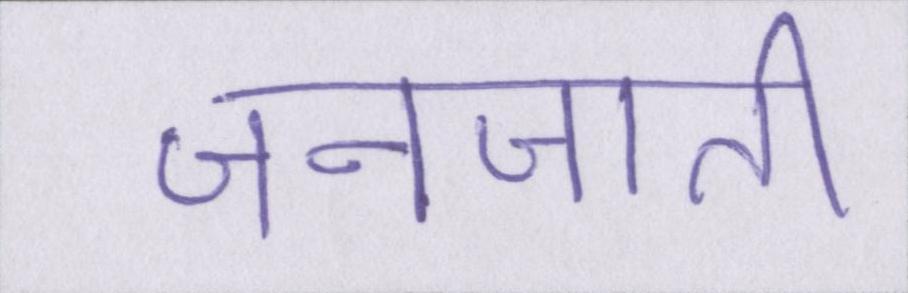 जनजाती